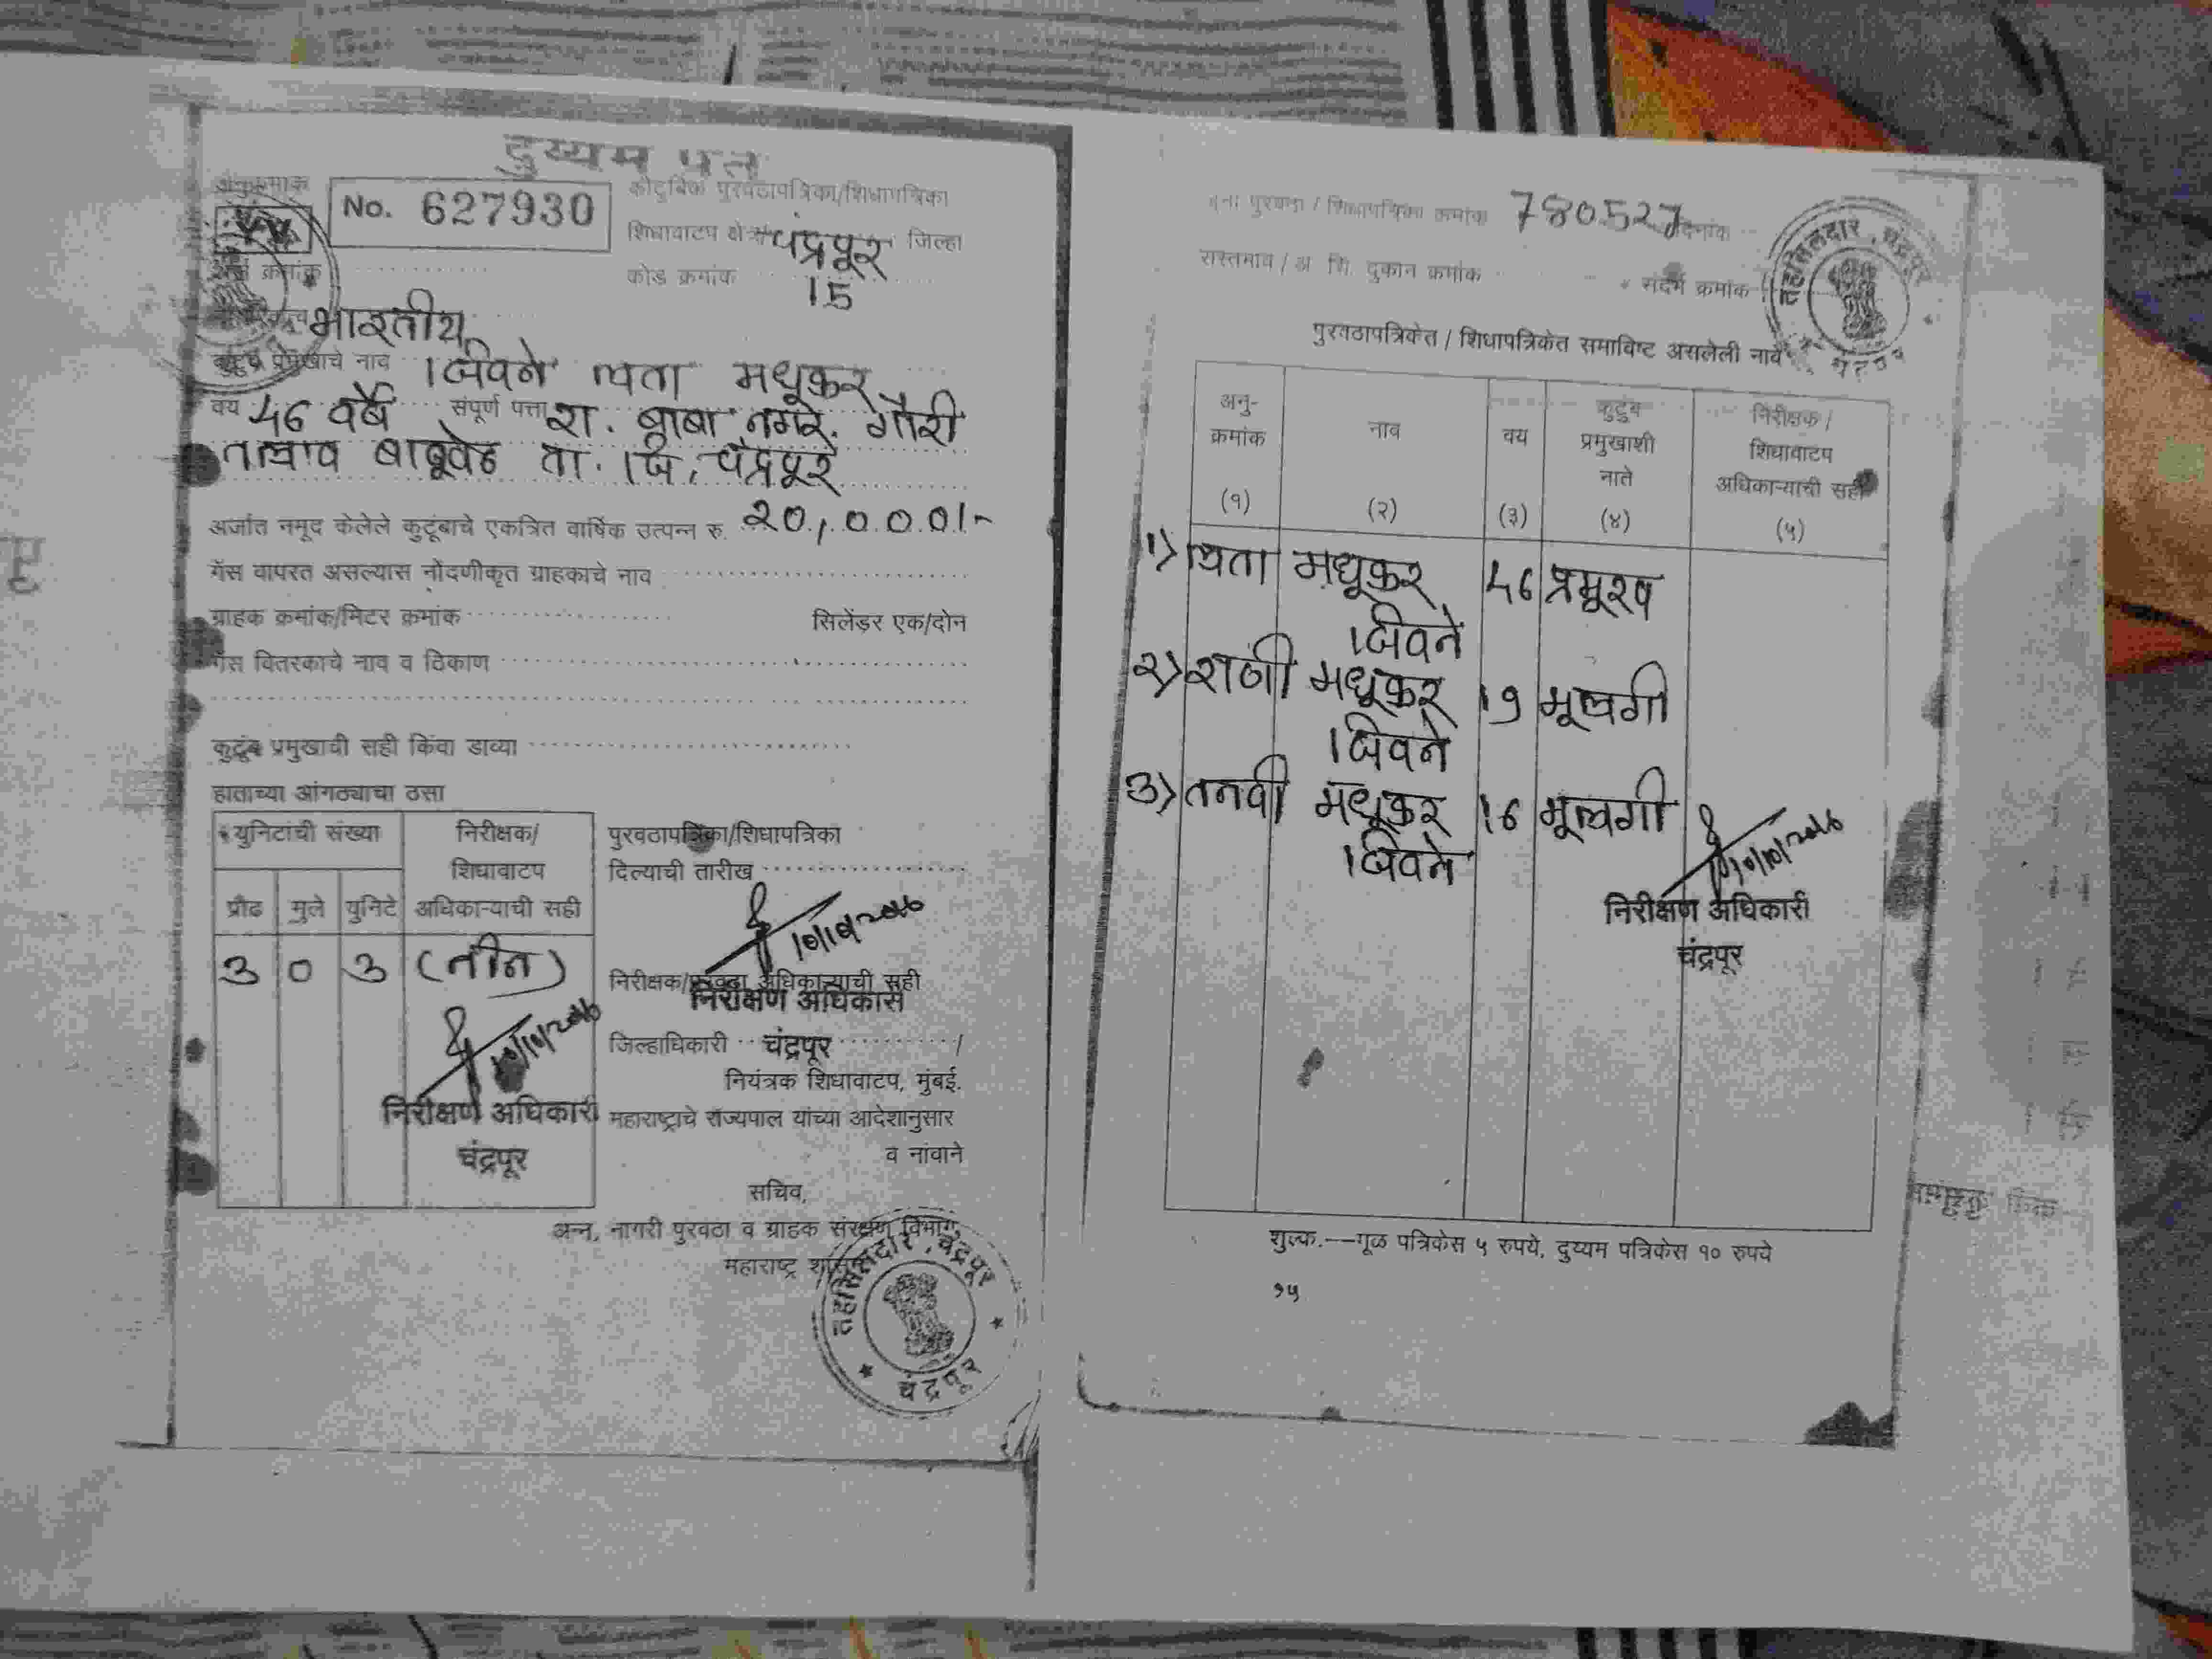 दुय्यम पत्र
अनुक्रमांक
No. 627930
कौटुंबिक पुरवठापत्रिका/शिधापत्रिका
शिधावाटप क्षेत्र चंद्रपूर जिल्हा
अर्ज क्रमांक
कोड क्रमांक 15
भारतीय
कुटुंब प्रमुखाचे नाव जिवने लता मधूकर
वय 46 वर्षे संपूर्ण पत्ता रा. बाबा नगर. गौरी
तलाव बाबूपेठ ता. जि. चंद्रपूर
अर्जात नमूद केलेले कुटूंबाचे एकत्रित वार्षिक उत्पन्न रु. 20,000/-
गॅस वापरत असल्यास नोंदणीकृत ग्राहकाचे नाव
ग्राहक क्रमांक/मिटर क्रमांक सिलेंडर एक/दोन
गॅस वितरकाचे नाव व ठिकाण
कुटुंब प्रमुखाची सही किंवा डाव्या
हाताच्या आंगठ्याचा ठसा
युनिटांची संख्या
निरीक्षक/
शिधावाटप
अधिकाऱ्याची सही
प्रौढ मुले युनिटे
3 0 3 (तीन)
निरीक्षण अधिकारी
चंद्रपूर
पुरवठापत्रिका/शिधापत्रिका
दिल्याची तारीख
निरीक्षक/पुरवठा अधिकाऱ्याची सही
निरीक्षण अधिकारी
जिल्हाधिकारी चंद्रपूर /
नियंत्रक शिधावाटप, मुंबई.
महाराष्ट्राचे राज्यपाल यांच्या आदेशानुसार
व नांवाने
सचिव,
अन्न, नागरी पुरवठा व ग्राहक संरक्षण विभाग,
महाराष्ट्र शासन
तहसिलदार, चंद्रपूर
चंद्रपूर
पुरवठा / शिधापत्रिका क्रमांक 780527 दिनांक
रास्तभाव / अ. शि. दुकान क्रमांक संदर्भ क्रमांक
तहसिलदार, चंद्रपूर
पुरवठापत्रिकेत / शिधापत्रिकेत समाविष्ट असलेली नावे
अनु-
क्रमांक
नाव
वय
कुटुंब
प्रमुखाशी
नाते
निरीक्षक /
शिधावाटप
अधिकाऱ्याची सही
(१) (२) (३) (४) (५)
1) लता मधूकर 46 प्रमूख
जिवने
2) राणी मधूकर 19 मूलगी
जिवने
3) तनवी मधूकर 16 मूलगी
जिवने
निरीक्षण अधिकारी
चंद्रपूर
शुल्क.—मूळ पत्रिकेस ५ रुपये, दुय्यम पत्रिकेस १० रुपये
१५